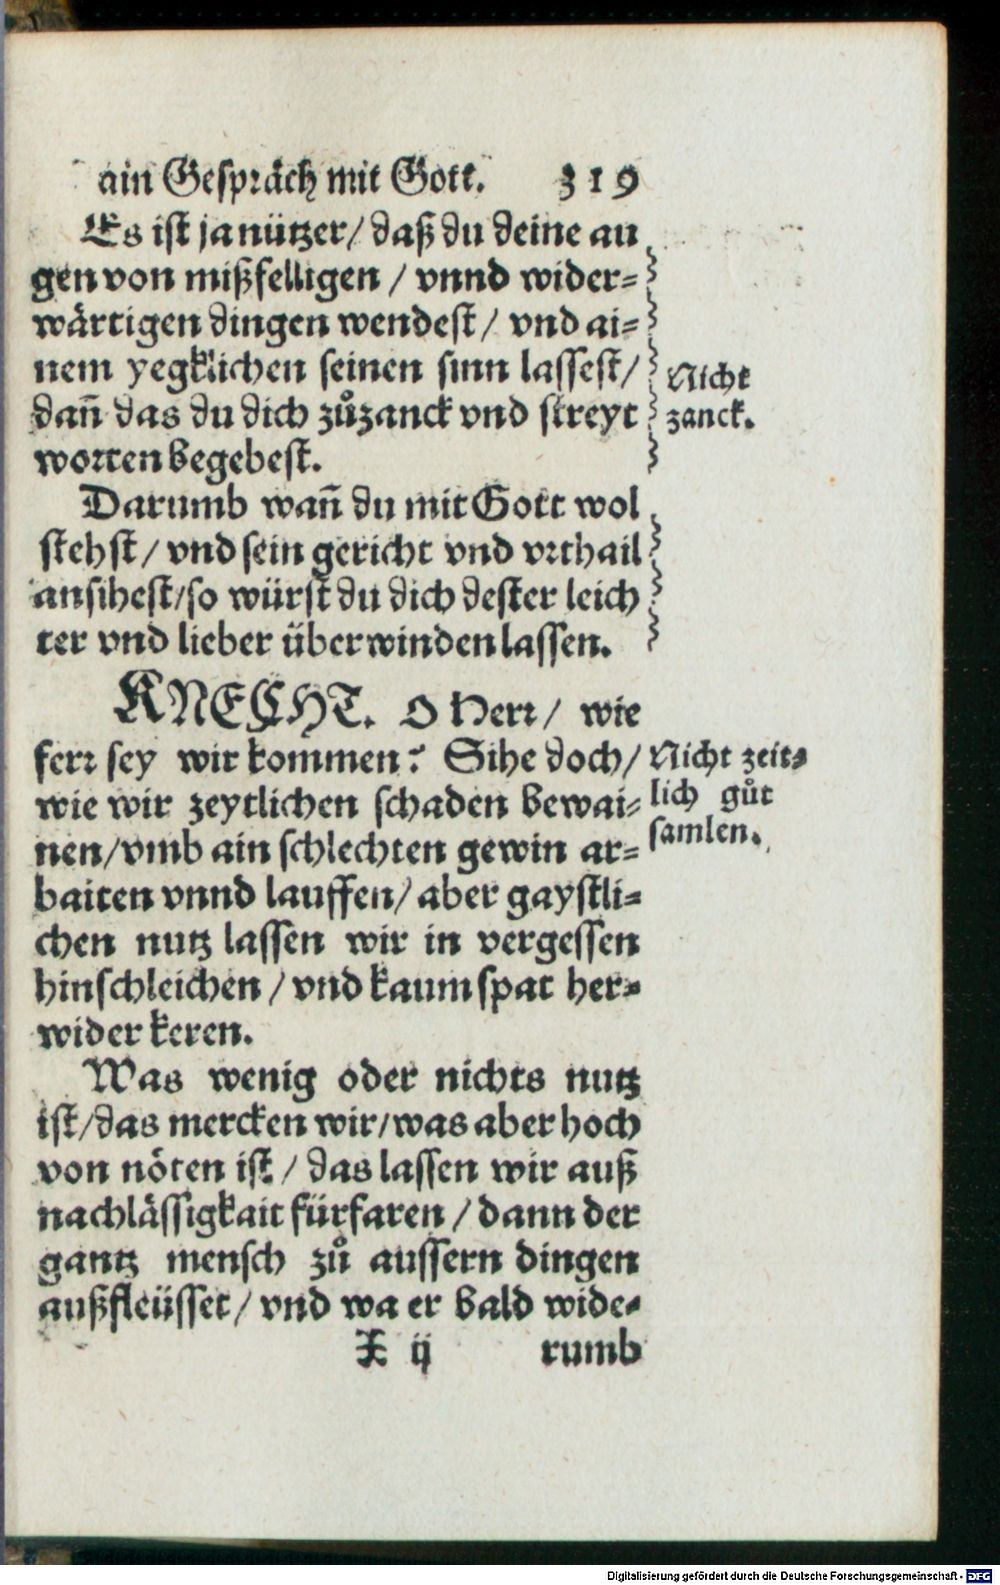 ain Gespräch mit Gott. 319
Es ist ja nützer/ daß du deine au
gen von mißfelligen / vnnd wider=
wärtigen dingen wendest/ vnd ai=
nem yegklichen seinen sinn lassest/
dañ das du dich zůzanck vnd streyt
worten begebest.
Nicht
zanck.
Darumb wañ du mit Gott wol
stehst/ vnd sein gericht vnd vrthail
ansihest/so würst du dich dester leich
ter vnd lieber überwinden lassen.
KNECHT. O Herr/ wie
ferr sey wir kommen? Sihe doch/
wie wir zeytlichen schaden bewai=
nen/vmb ain schlechten gewin ar=
baiten vnnd lauffen/ aber gaystli=
chen nutz lassen wir in vergessen
hinschleichen / vnd kaum spat her=
wider keren.
Nicht zeit=
lich gůt
samlen.
Was wenig oder nichts nutz
ist/das mercken wir/was aber hoch
von nöten ist / das lassen wir auß
nachlässigkait fürfaren / dann der
gantz mensch zů aussern dingen
außfleüsset/ vnd wa er bald wide=
X ij rumb
Digitalisierung gefördert durch die Deutsche Forschungsgemeinschaft - DFG